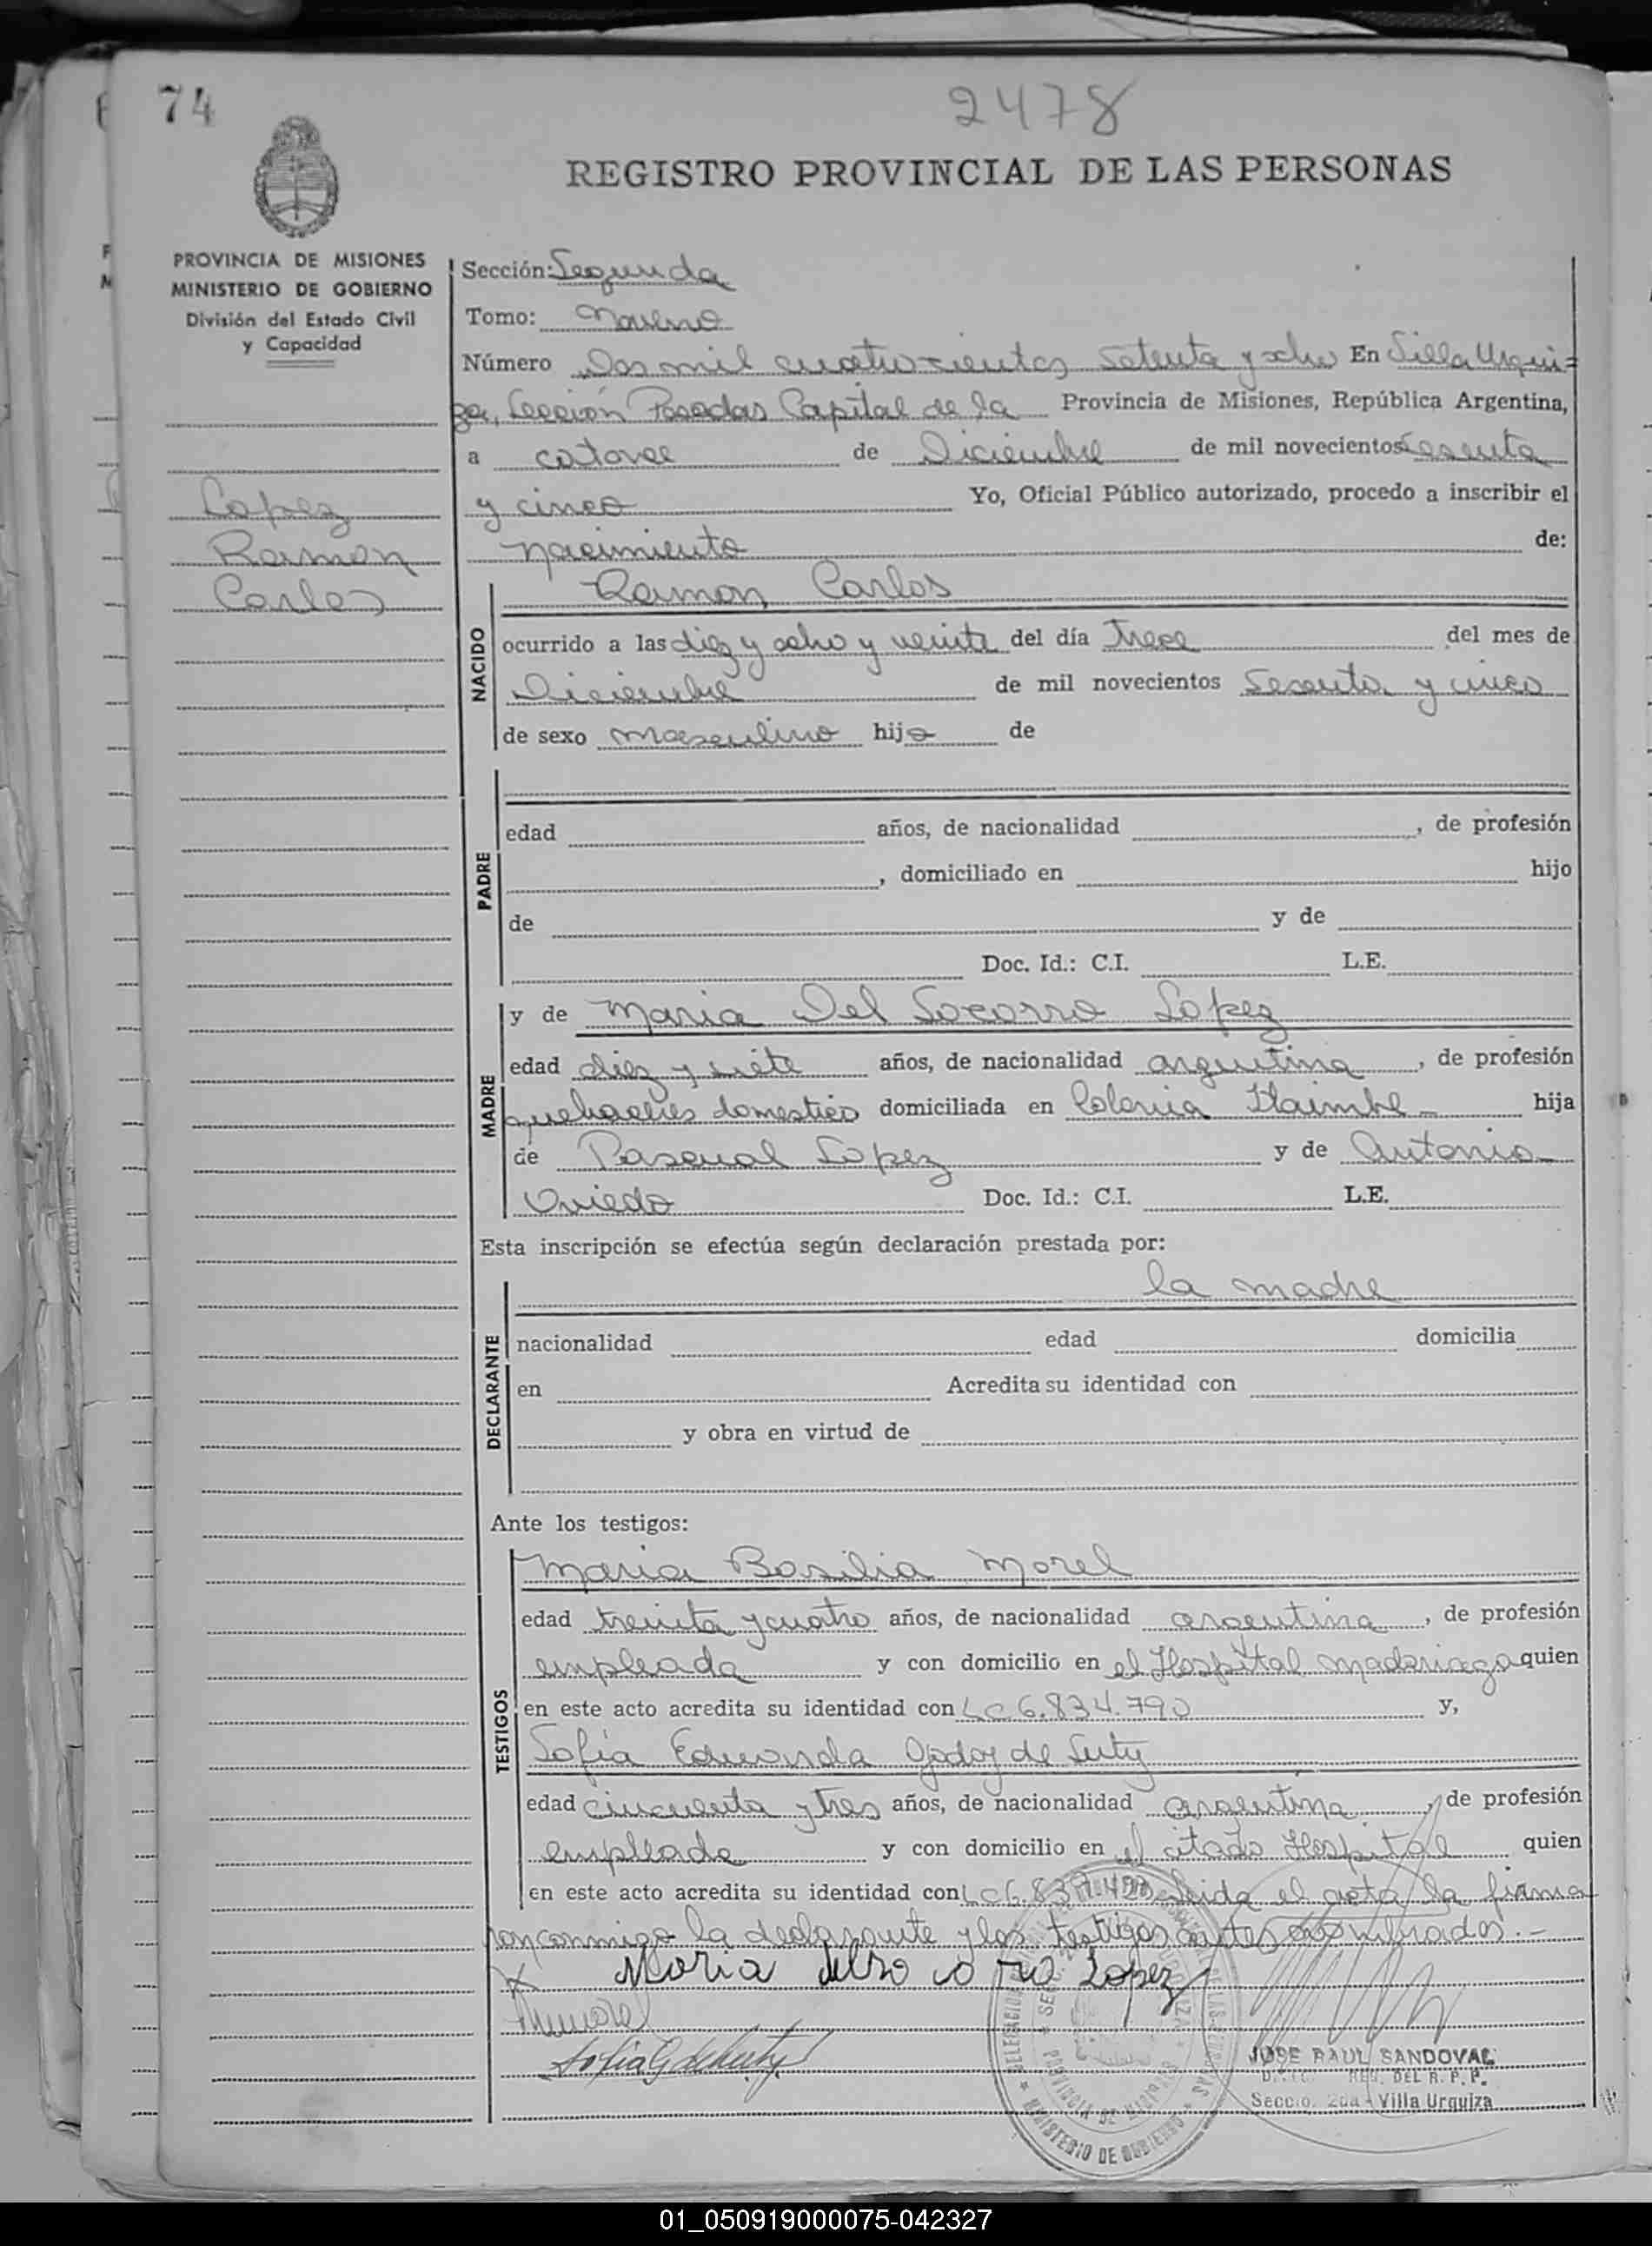 74
2478
REGISTRO PROVINCIAL DE LAS PERSONAS
PROVINCIA DE MISIONES
MINISTERIO DE GOBIERNO
División del Estado Civil
y Capacidad
Lopez
Ramon
Carlos
Sección: Segunda
Tomo: Noveno
Número Dos mil cuatrocientos setenta y ocho En Villa Urqui-
za, Sección Posadas Capital de la Provincia de Misiones, República Argentina,
a catorce de Diciembre de mil novecientos sesenta
y cinco Yo, Oficial Público autorizado, procedo a inscribir el
nacimiento de:
NACIDO
Ramon Carlos
ocurrido a las diez y ocho y veinte del día trece del mes de
Diciembre de mil novecientos sesenta y cinco
de sexo masculino hijo de
PADRE
edad años, de nacionalidad , de profesión
, domiciliado en hijo
de y de
Doc. Id.: C.I. L.E.
MADRE
y de Maria Del Socorro Lopez
edad diez y siete años, de nacionalidad argentina , de profesión
quehaceres domestico domiciliada en Colonia Itaimbe hija
de Pascual Lopez y de Antonia
Oviedo Doc. Id.: C.I. L.E.
Esta inscripción se efectúa según declaración prestada por:
DECLARANTE
la madre
nacionalidad edad domicilia
en Acredita su identidad con
y obra en virtud de
Ante los testigos:
TESTIGOS
Maria Basilia Morel
edad treinta y cuatro años, de nacionalidad argentina , de profesión
empleada y con domicilio en el Hospital Madariaga quien
en este acto acredita su identidad con LC 6.834.790 y,
Sofia Eduarda Godoy de
edad cincuenta y tres años, de nacionalidad argentina , de profesión
empleada y con domicilio en el citado Hospital quien
en este acto acredita su identidad con LC 6. leida el acta la firma
con conmigo la declarante y los testigos antes nombrados.-
x Maria delso co rro Lopez
Sofia G de
JOSE RAUL SANDOVAL
DEL R. P. P.
Seccio. 2da - Villa Urquiza
PROVINCIA DE MISIONES
MINISTERIO DE GOBIERNO
01_050919000075-042327